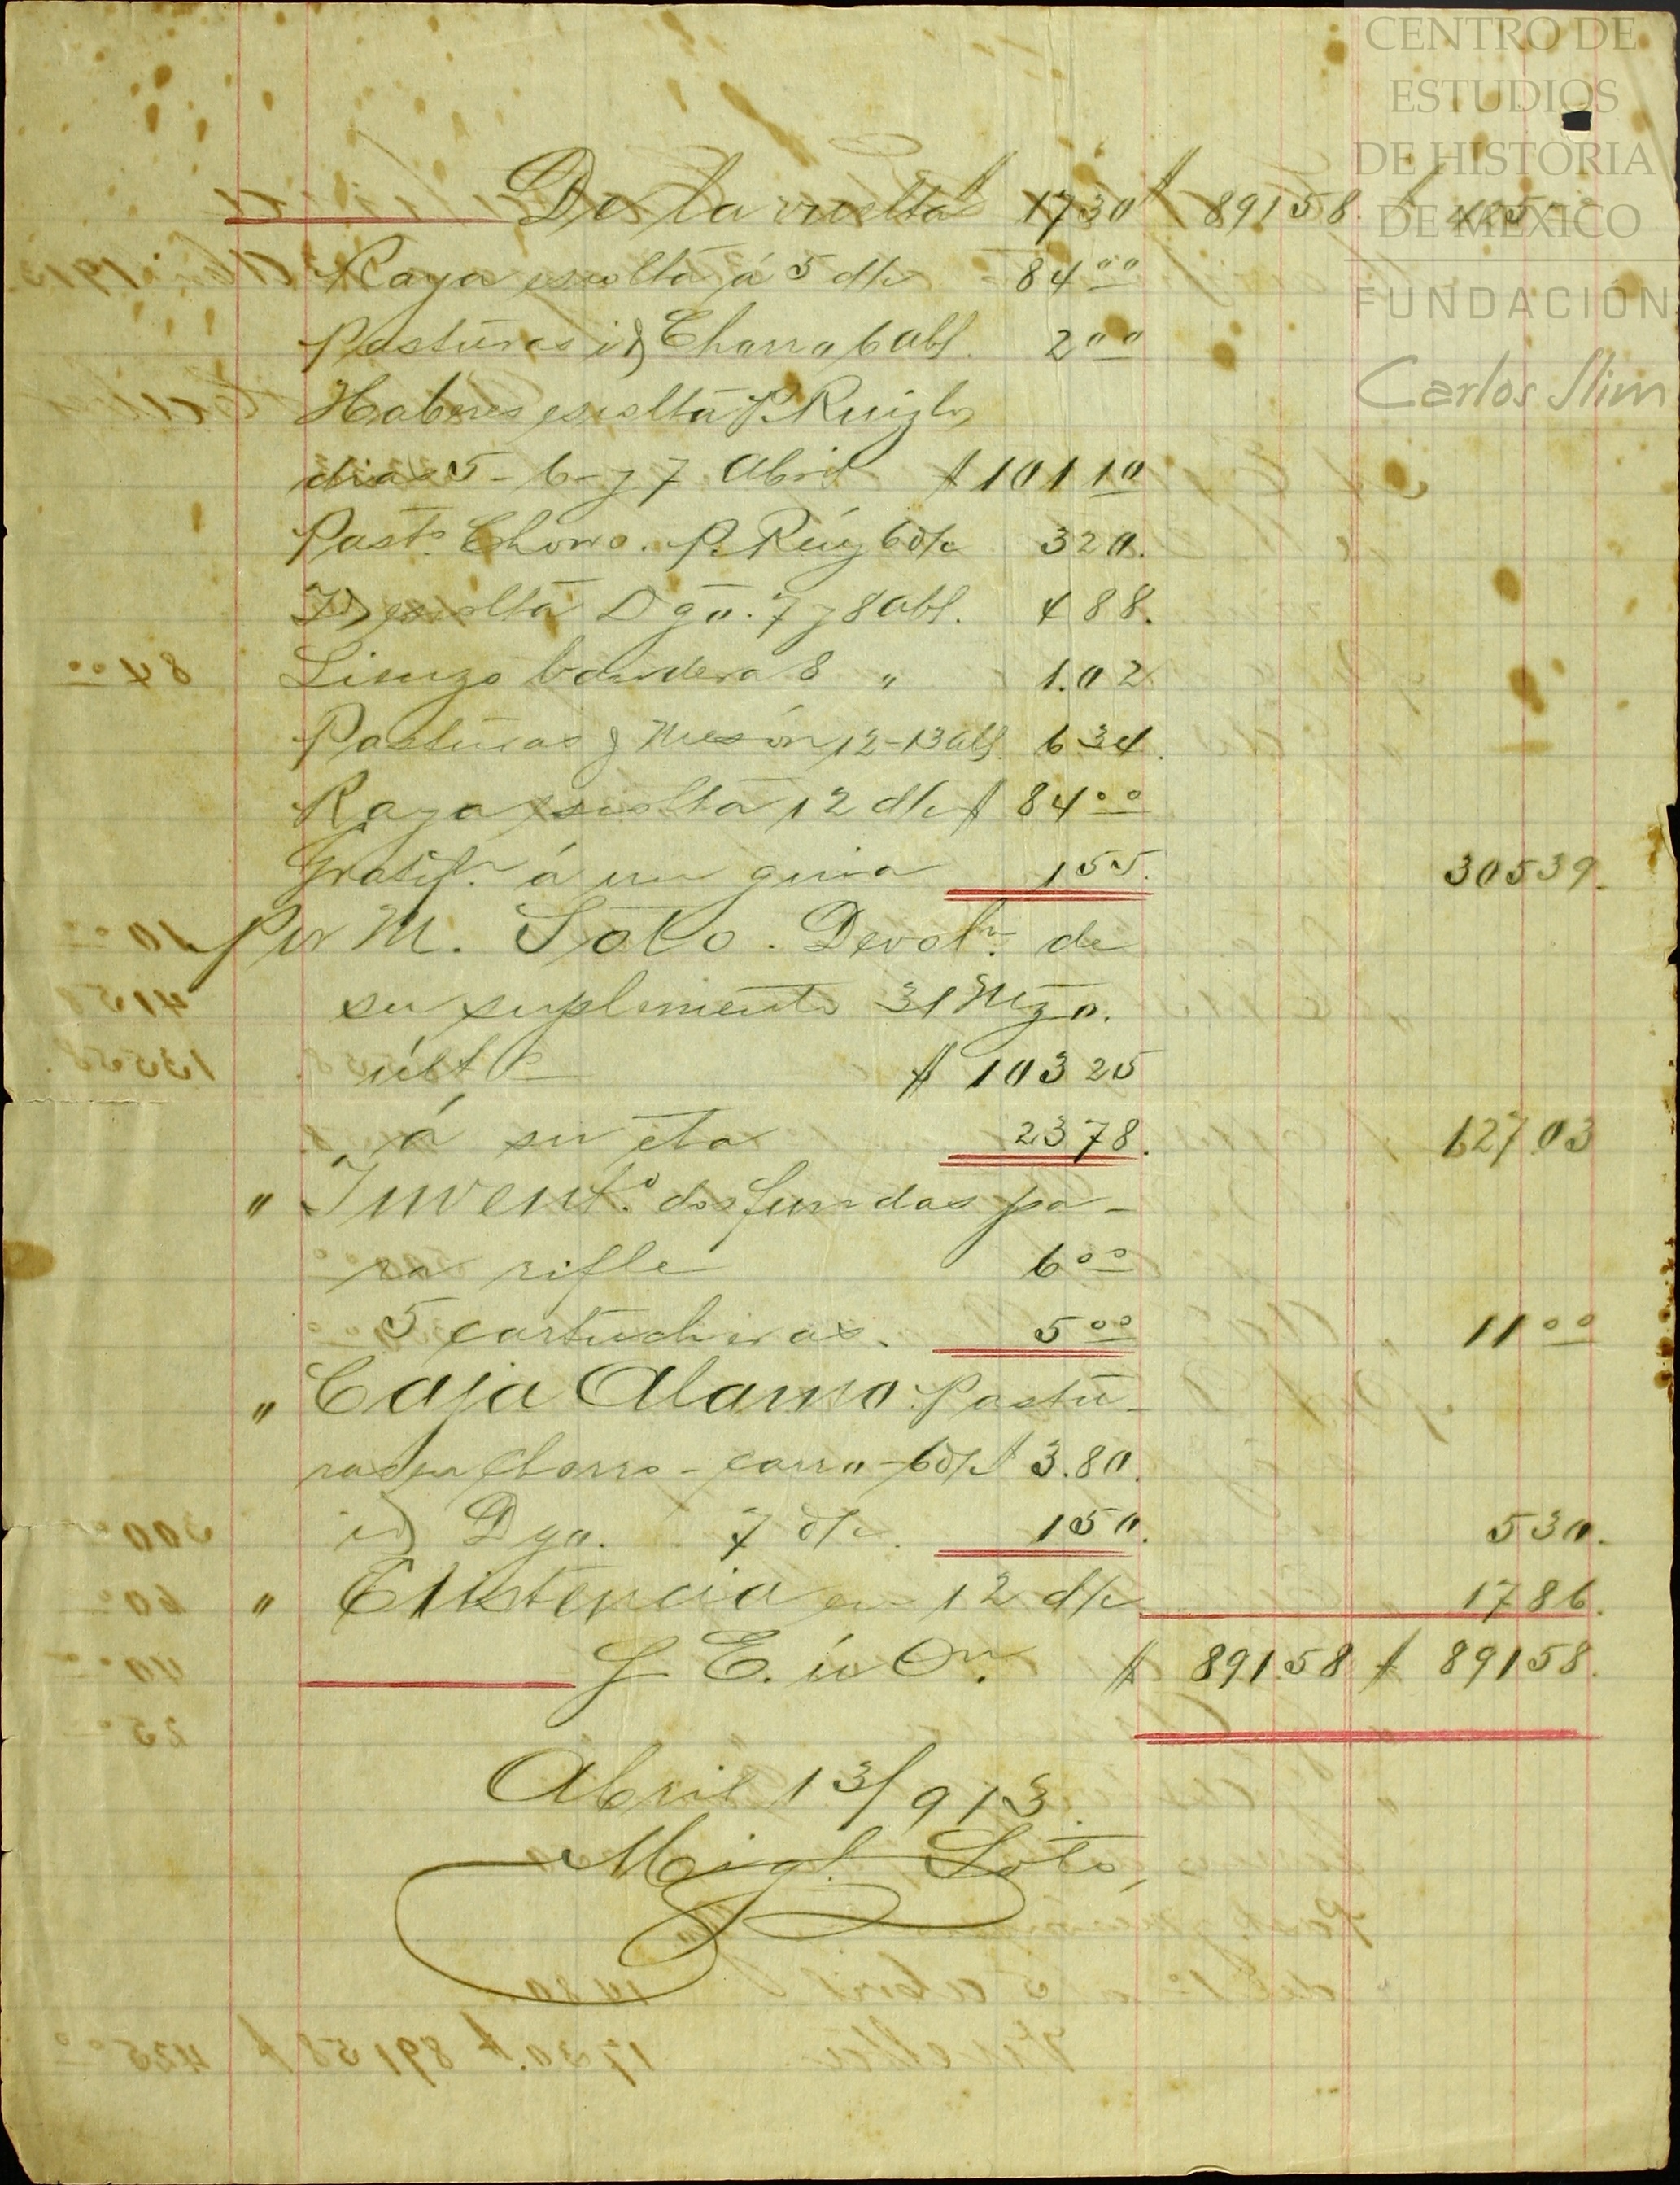 CENTRO DE
ESTUDIOS
DE HISTORIA
DE MÉXICO
FUNDACIÓN
Carlos Slim
De la vuelta $ 1730 $ 89158. $ 425
Raya escolta á 5 d/c 84.00
Pasturas id Charro 6 abl. 2.00
Haberes escolta P. Ruiz los
dias 5 - 6 - y 7 Abril $ 101 10
Past.s Chorro. P. Ruiz 6 d/c 320.
Id escolta Dgo. 7 y 8 abl. 488.
Lienzo bandera 8 " 1.02
Pasturas y Mesón 12-13 abl. 634.
Raya escolta 12 d/c $ 84.00
Gratifn. á un guia 155. 30539.
Por M. Soto. Devoln. de
su suplemento 31 Mzo.
últo $ 10325
á su cta 2378. 12703
" Invent.o dos fundas pa-
ra rifle 6.00
5 cartucheras. 5.00 11.00
" Caja Alamo. Pastu-
ras en Chorro - carro - 6 d/c $ 3.80.
id Dgo. 7 d/c. 150. 530.
" Existencia en 12 d/c 1786.
S. E. ú On. $ 89158 $ 89158.
Abril 13/913.
Migl. Soto